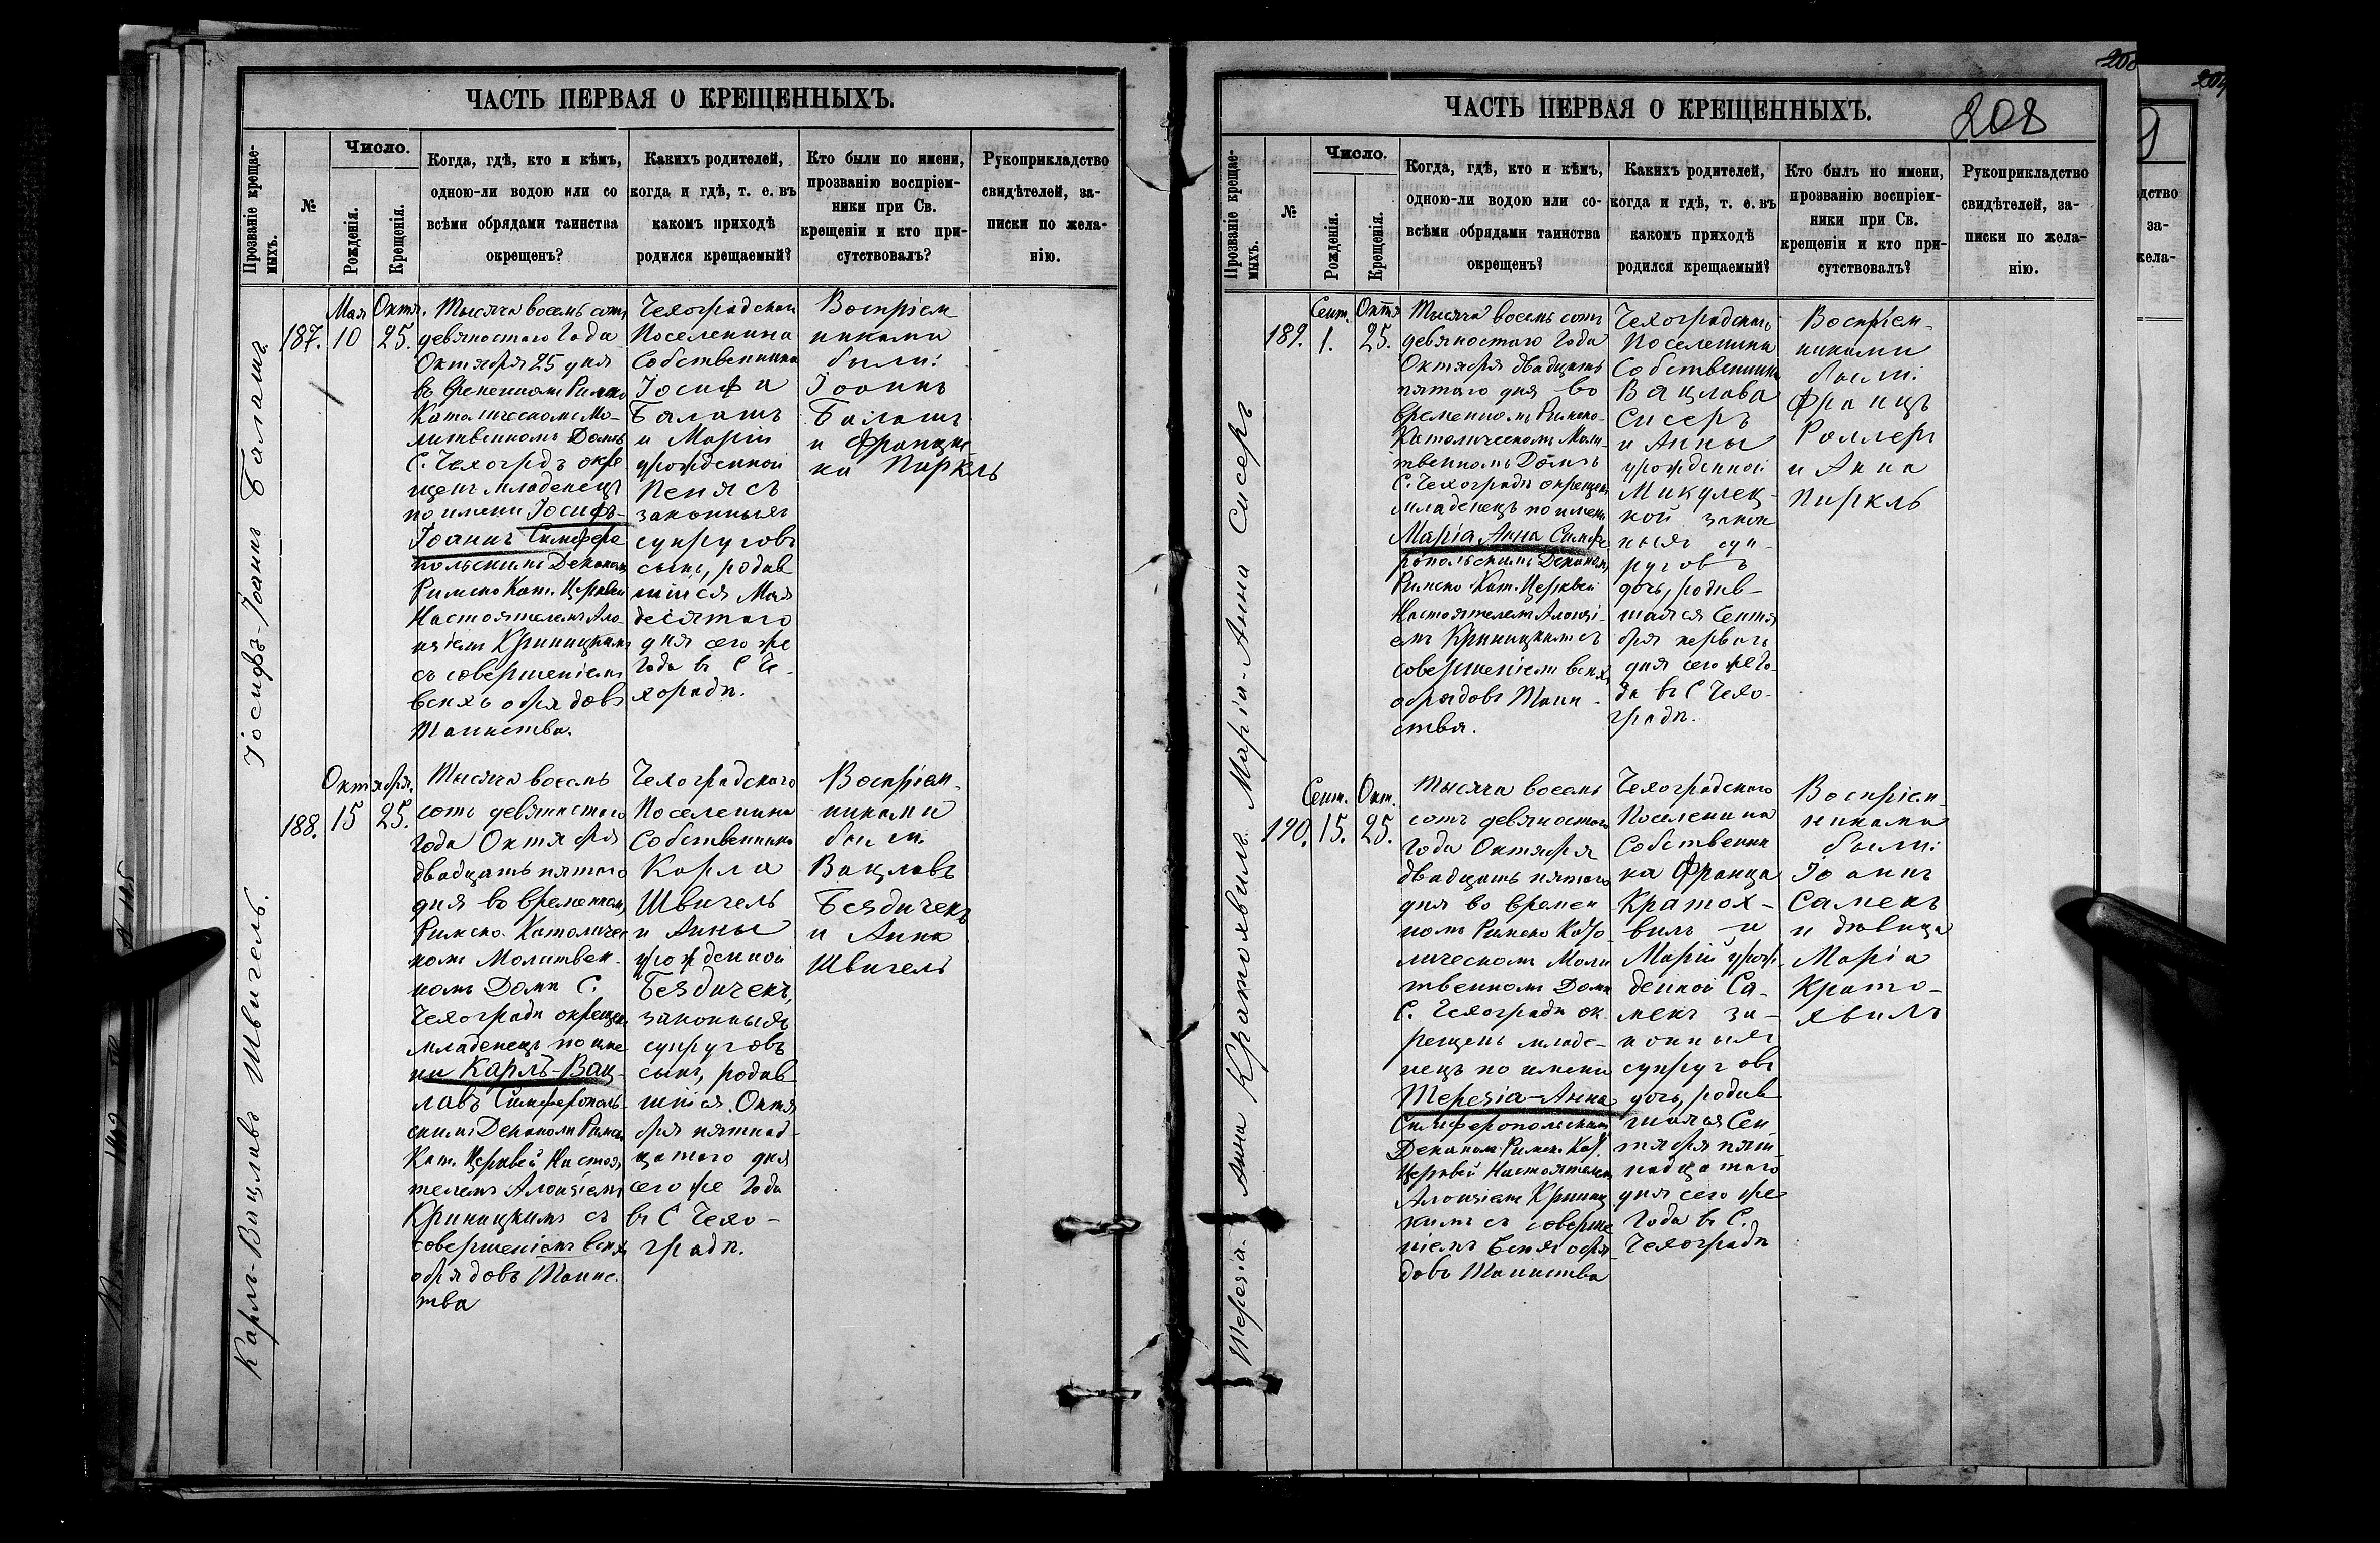 ЧАСТЬ ПЕРВАЯ О КРЕЩЕННЫХЪ.
Прозваніе крещае-
мыхъ.
№
Число.
Рожденія.
Крещенія.
Когда, гдѣ, кто и кѣмъ,
одною-ли водою или со
всѣми обрядами таинства
окрещенъ?
Какихъ родителей,
когда и гдѣ, т. е. въ
какомъ приходѣ
родился крещаемый?
Кто были по имени,
прозванію воспріем-
ники при Св.
крещеніи и кто при-
сутствовалъ?
Рукоприкладство
свидѣтелей, за-
писки по жела-
нію.
Іосифъ-Іоаннъ Балашъ
187.
Мая
10
Октя.
25.
Тысяча восемь сотъ
девяностаго Года
Октября 25 дня
въ временномъ Римско
Католическомъ Мо-
литвенномъ Домѣ
С. Чехоградъ окре
щенъ младенецъ
по имени Іосифъ-
Іоаннъ Симферо
польскимъ Деканомъ
Римско Кат. Церквей
Настоятелемъ Ало-
изіемъ Криницкимъ
съ совершеніемъ
всѣхъ обрядовъ
Таинства.
Чехоградскаго
Поселенина
Собственника
Іосифа
Балашъ
и Маріи
урожденной
Пенясъ
законныхъ
супруговъ
сынъ, родив
шійся Мая
десятаго
дня сего же
Года въ С Че-
хоградѣ.
Воспріем
никами
были:
Іоаннъ
Балашъ
и Францис
ка Пиркль
Карлъ-Вацлавъ Швигель.
188.
Октября.
15
25.
Тысяча восемь
сотъ девяностаго
Года Октября
двадцать пятаго
дня во временномъ
Римско-Католичес
комъ Молитвен-
номъ Домѣ С.
Чехоградѣ окрещенъ
младенецъ по име
ни Карлъ-Вац-
лавъ Симферополь-
скимъ Деканомъ Римско
Кат. Церквей Настоя
телемъ Алоизіемъ
Криницкимъ съ
совершеніемъ всѣхъ
обрядовъ Таинс.
тва
Чехоградскаго
Поселенина
Собственника
Карла
Швигель
и Анны
урожденной
Бездичекъ,
законныхъ
супруговъ
сынъ, родив-
шійся Октя
бря пятнад-
цатаго дня
сего же Года
въ С Чехо-
градѣ.
Воспріем-
никами
были.
Вацлавъ
Бездичекъ
и Анна
Швигель
ЧАСТЬ ПЕРВАЯ О КРЕЩЕННЫХЪ.
208
Прозваніе крещае-
мыхъ.
№
Число.
Рожденія.
Крещенія.
Когда, гдѣ, кто и кѣмъ,
одною-ли водою или со-
всѣми обрядами таинства
окрещенъ?
Какихъ родителей,
когда и гдѣ, т. е. въ
какомъ приходѣ
родился крещаемый?
Кто былъ по имени,
прозванію воспріем-
ники при Св.
крещеніи и кто при-
сутствовалъ?
Рукоприкладство
свидѣтелей, за-
писки по жела-
нію.
Марія-Анна Сисеръ
189.
Сент.
1.
Октя
25.
Тысяча восемь сотъ
девяностаго Года
Октября двадцать
пятаго дня во
временномъ Римско-
Католическомъ Моли-
твенномъ Домѣ
С. Чехоградѣ окрещенъ
младенецъ по имени
Марія Анна Симфе
ропольскимъ Деканомъ
Римско Кат. Церквей
Настоятелемъ Алоизі-
емъ Криницкимъ съ
совершеніемъ всѣхъ
обрядовъ Таин-
ства.
Чехоградскаго
Поселенина
Собственника
Вацлава
Сисеръ
и Анны
урожденной
Микулец-
кой закон
ныхъ суп-
руговъ
дочь, родив-
шаяся Сентя
бря перваго
дня сего же Го-
да въ С Чехо-
градѣ.
Воспріем-
никами
были:
Францъ
Роллеръ
и Анна
Пиркль
Терезія-Анна Кратохвиль
190.
Сент.
15.
Окт.
25.
Тысяча восемь
сотъ девяностаго
Года Октября
двадцать пятаго
дня во времен
номъ Римско Като
лическомъ Моли
твенномъ Домѣ
С. Чехоградѣ ок-
рещенъ младе-
нецъ по имени
Терезія-Анна
Симферопольскимъ
Деканомъ Римско Кат.
Церквей Настоятелемъ
Алоизіемъ Криниц
кимъ съ соверше
ніемъ всѣхъ обря-
довъ Таинства
Чехоградскаго
Поселенина
Собственни
ка Франца
Кратох-
виль и
Маріи урож-
денной Са-
мекъ за-
конныхъ
супруговъ
дочь, родив-
шаяся Сен
тября пят-
надцатаго
дня сего же
Года въ С.
Чехоградѣ
Воспріем-
никами
были:
Іоаннъ
Самекъ
и дѣвица
Марія
Крато-
хвиль
дство
за-
жела-